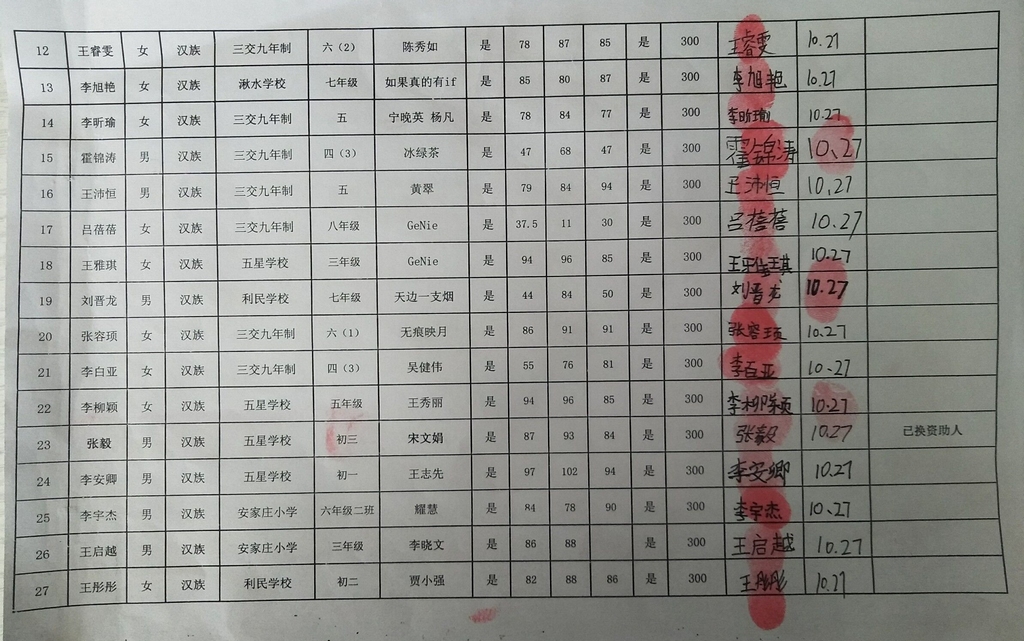 12 王睿雯 女 汉族 三交九年制 六（2） 陈秀如 是 78 87 85 是 300 王睿雯 10.27
13 李旭艳 女 汉族 湫水学校 七年级 如果真的有if 是 85 80 87 是 300 李旭艳 10.27
14 李昕瑜 女 汉族 三交九年制 五 宁晚英 杨凡 是 78 84 77 是 300 李昕瑜 10.27
15 霍锦涛 男 汉族 三交九年制 四（3） 冰绿茶 是 47 68 47 是 300 霍锦涛 10.27
16 王沛恒 男 汉族 三交九年制 五 黄翠 是 79 84 94 是 300 王沛恒 10.27
17 吕蓓蓓 女 汉族 三交九年制 八年级 GeNie 是 37.5 11 30 是 300 吕蓓蓓 10.27
18 王雅琪 女 汉族 五星学校 三年级 GeNie 是 94 96 85 是 300 王雅琪 10.27
19 刘晋龙 男 汉族 利民学校 七年级 天边一支烟 是 44 84 50 是 300 刘晋龙 10.27
20 张容顼 女 汉族 三交九年制 六（1） 无痕映月 是 86 91 91 是 300 张容顼 10.27
21 李白亚 女 汉族 三交九年制 四（3） 吴健伟 是 55 76 81 是 300 李白亚 10.27
22 李柳颖 女 汉族 五星学校 五年级 王秀丽 是 94 96 85 是 300 李柳颖 10.27
23 张毅 男 汉族 五星学校 初三 宋文娟 是 87 93 84 是 300 张毅 10.27 已换资助人
24 李安卿 男 汉族 五星学校 初一 王志先 是 97 102 94 是 300 李安卿 10.27
25 李宇杰 男 汉族 安家庄小学 六年级二班 耀慧 是 84 78 90 是 300 李宇杰 10.27
26 王启越 男 汉族 安家庄小学 三年级 李晓文 是 86 88 是 300 王启越 10.27
27 王彤彤 女 汉族 利民学校 初二 贾小强 是 82 88 86 是 300 王彤彤 10.27